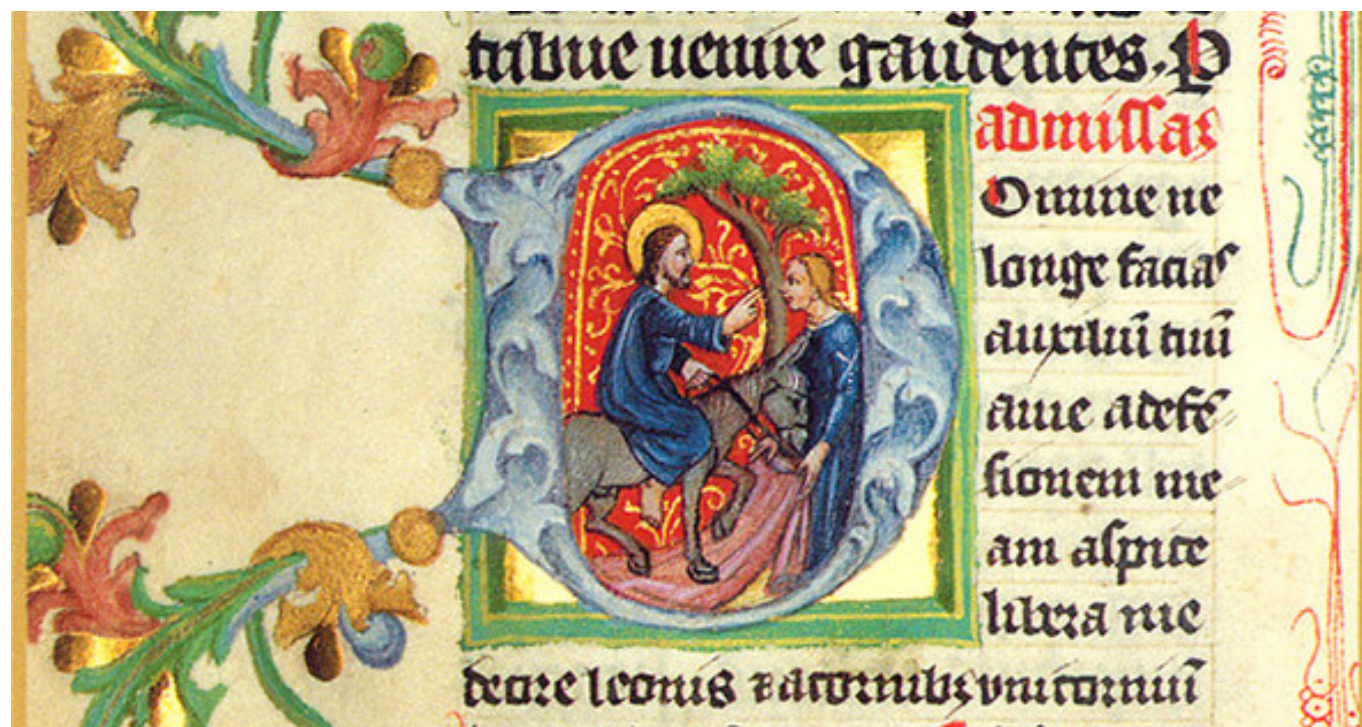 tribue uenire gaudentes. P
admissas
Domine ne
longe facias
auxiliū tuū
a me ad defē
sionem me
am aspice
libera me
de ore leonis ⁊ a cornibꝫ vnicorniū